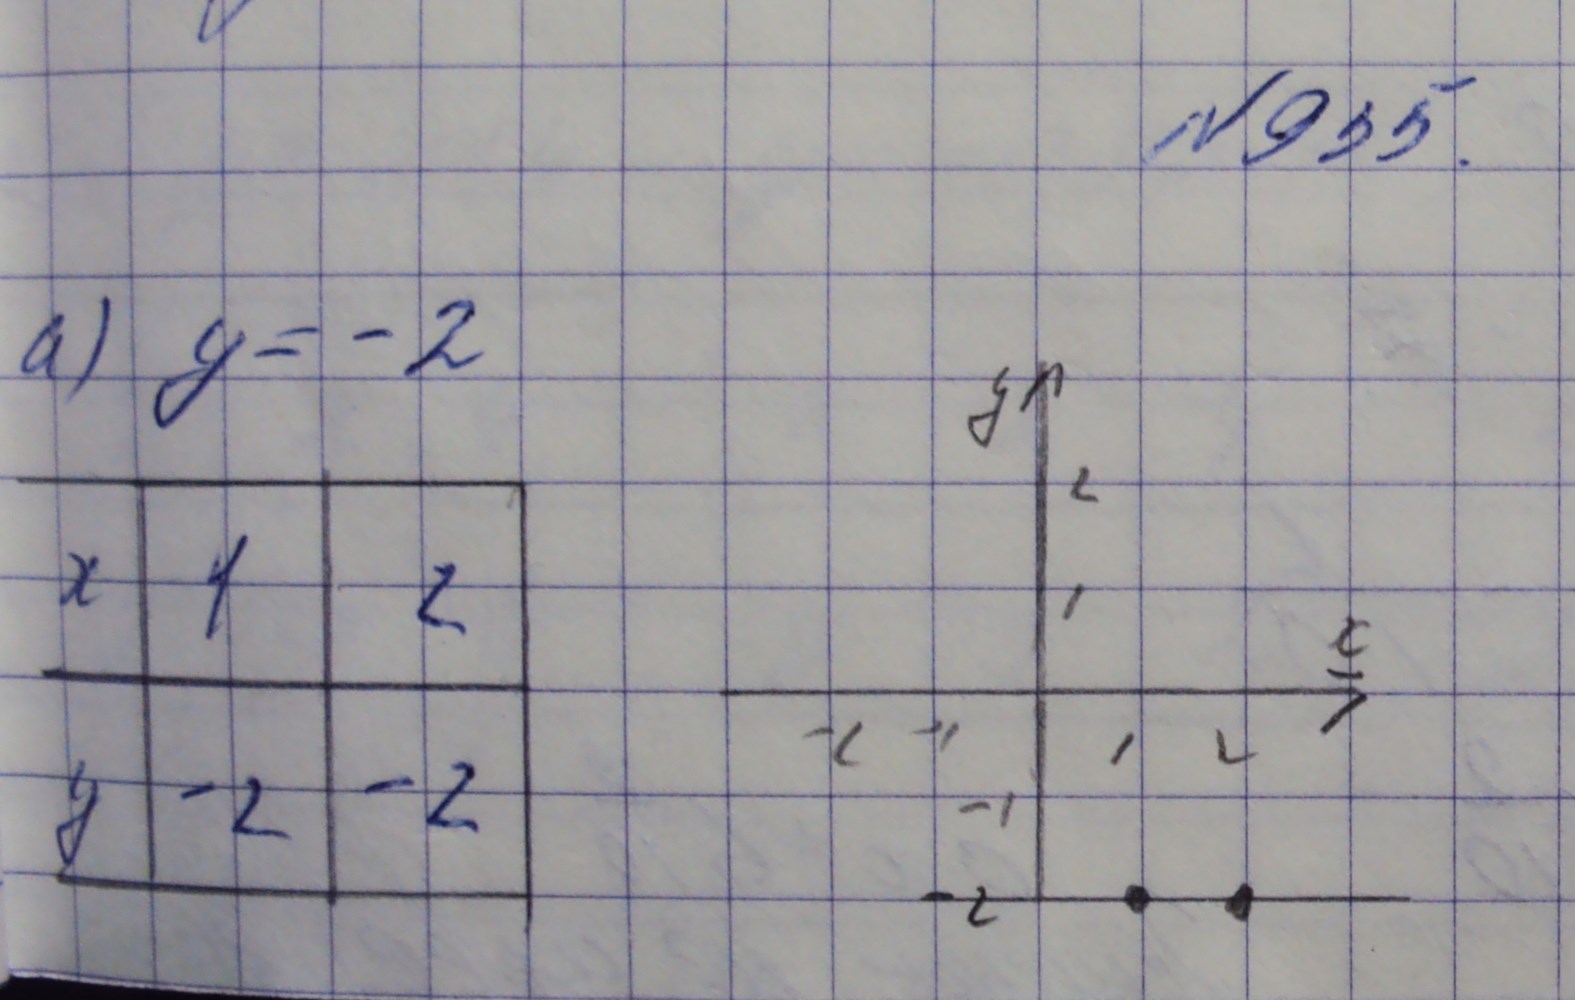 №935.
а) y = -2
x 1 2
y -2 -2
y
2
1
x
-2 -1 1 2
-1
-2